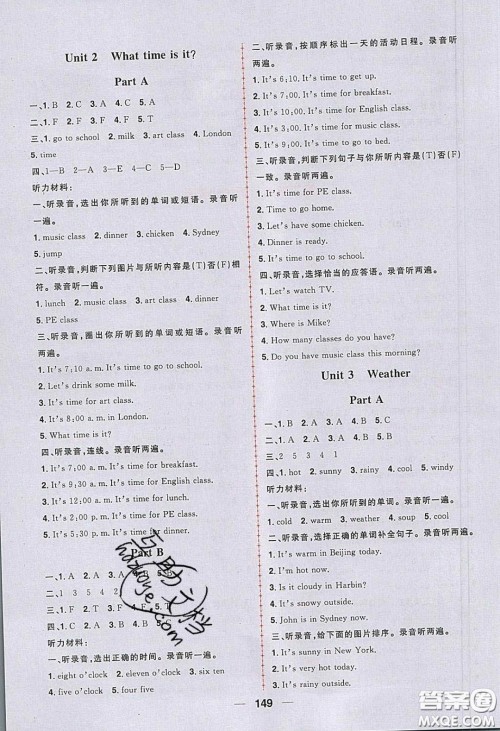 Unit 2 What time is it?
Part A
一、1. B 2. C 3. A 4. C 5. A
二、1. F 2. F 3. T 4. T 5. F
三、1. go to school 2. milk 3. art class 4. London
5. time
四、1—B 2—A 3—E 4—C 5—D
听力材料:
一、听录音,选出你所听到的单词或短语。录音听一遍。
1. music class 2. dinner 3. chicken 4. Sydney
5. jump
二、听录音,判断下列图片与所听内容是(T)否(F)相
符。录音听一遍。
1. lunch 2. music class 3. art class 4. dinner
5. PE class
三、听录音,圈出你所听到的单词或短语。录音听
两遍。
1. It's 7:10 a. m. It's time to go to school.
2. Let's drink some milk.
3. It's time for art class.
4. It's 7:00 a. m. in London.
5. What time is it?
四、听录音,连线。录音听两遍。
1. It's 7:00 a. m. It's time for breakfast.
2. It's 9:10 a. m. It's time for English class.
3. It's 12:00 a. m. It's time for lunch.
4. It's 2:00 p. m. It's time for PE class.
5. It's 5:30 p. m. It's time for dinner.
Part B
一、1. A 2. B 3. A 4. B
二、1 3 5 4 2
三、1. F 2. T 3. F 4. T 5. T
四、1. B 2. A 3. A
听力材料:
一、听录音,选出正确的时间。录音听一遍。
1. eight o'clock 2. eleven o'clock 3. six ten
4. five o'clock 5. four o'clock
二、听录音,按顺序标出一天的活动日程。录音听
两遍。
1. It's 6:10. It's time to get up.
2. It's 7:00. It's time for breakfast.
3. It's 10:00. It's time for English class.
4. It's 3:00. It's time for music class.
5. It's 9:00. It's time to go to bed.
三、听录音,判断下列句子与你所听内容是(T)否(F)
一致。录音听两遍。
1. It's time for PE class.
2. Time to go home.
3. Let's have some chicken.
4. Dinner is ready.
5. It's time for breakfast.
四、听录音,选择恰当的应答语。录音听两遍。
1. Let's watch TV.
2. What time is it?
3. Where is Mike?
4. How many classes do you have?
5. Do you have music class this morning?
Unit 3 Weather
Part A
一、1. B 2. C 3. A 4. B 5. C
二、1. A 2. A 3. B 4. B 5. B
三、2 5 3 4 1
四、1. hot 2. sunny 3. rainy 4. cool 5. windy
听力材料:
一、听录音,选出你所听到的单词。录音听一遍。
1. cold 2. snowy 3. weather 4. soup 5. cool
二、听录音,选择正确的单词补全句子。录音听
两遍。
1. It's warm in Beijing today.
2. It's hot today.
3. Is it cloudy in Harbin?
4. It's snowy outside.
5. John is in Sydney now.
三、听录音,给下面的图片排序。录音听两遍。
1. It's sunny in New York.
2. It's very hot today.
3. It's rainy outside.
149
答案圈
MXQE.COM